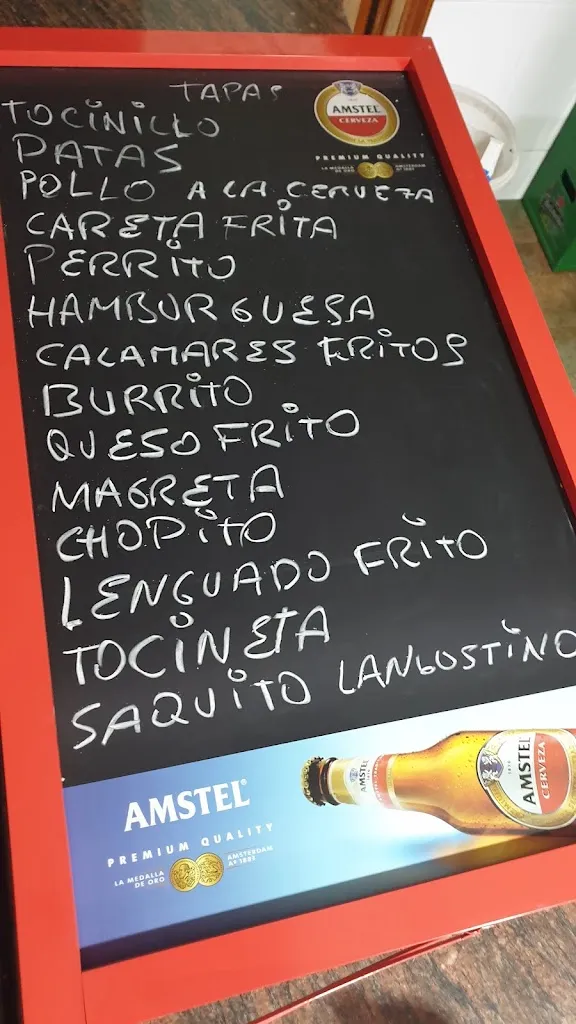 TAPAS
AMSTEL
CERVEZA
PREMIUM QUALITY
LA MEDALLA DE ORO
AMSTERDAM Aº 1883
TOCINILLO
PATAS
POLLO A LA CERVEZA
CARETA FRITA
PERRITO
HAMBURGUESA
CALAMARES FRITOS
BURRITO
QUESO FRITO
MAGRETA
CHOPITO
LENGUADO FRITO
TOCINETA
SAQUITO LANGOSTINO
AMSTEL®
PREMIUM QUALITY
LA MEDALLA DE ORO
AMSTERDAM Aº 1883
AMSTEL
AMSTEL
CERVEZA